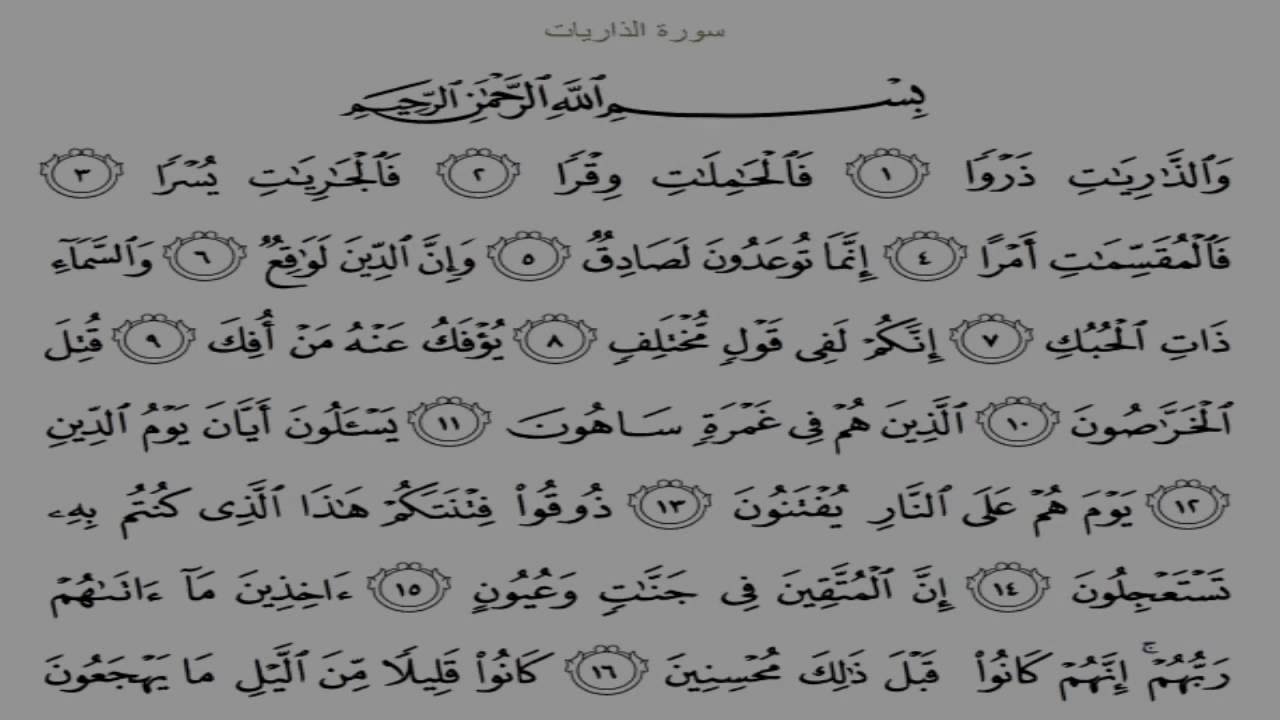 سورة الذاريات
بِسْمِ ٱللَّهِ ٱلرَّحْمَٰنِ ٱلرَّحِيمِ
وَٱلذَّٰرِيَٰتِ ذَرْوًا ١ فَٱلْحَٰمِلَٰتِ وِقْرًا ٢ فَٱلْجَٰرِيَٰتِ يُسْرًا ٣
فَٱلْمُقَسِّمَٰتِ أَمْرًا ٤ إِنَّمَا تُوعَدُونَ لَصَادِقٌ ٥ وَإِنَّ ٱلدِّينَ لَوَٰقِعٌ ٦ وَٱلسَّمَآءِ
ذَاتِ ٱلْحُبُكِ ٧ إِنَّكُمْ لَفِى قَوْلٍ مُّخْتَلِفٍ ٨ يُؤْفَكُ عَنْهُ مَنْ أُفِكَ ٩ قُتِلَ
ٱلْخَرَّٰصُونَ ١٠ ٱلَّذِينَ هُمْ فِى غَمْرَةٍ سَاهُونَ ١١ يَسْـَٔلُونَ أَيَّانَ يَوْمُ ٱلدِّينِ
١٢ يَوْمَ هُمْ عَلَى ٱلنَّارِ يُفْتَنُونَ ١٣ ذُوقُوا۟ فِتْنَتَكُمْ هَٰذَا ٱلَّذِى كُنتُم بِهِۦ
تَسْتَعْجِلُونَ ١٤ إِنَّ ٱلْمُتَّقِينَ فِى جَنَّٰتٍ وَعُيُونٍ ١٥ ءَاخِذِينَ مَآ ءَاتَىٰهُمْ
رَبُّهُمْ ۚ إِنَّهُمْ كَانُوا۟ قَبْلَ ذَٰلِكَ مُحْسِنِينَ ١٦ كَانُوا۟ قَلِيلًا مِّنَ ٱلَّيْلِ مَا يَهْجَعُونَ